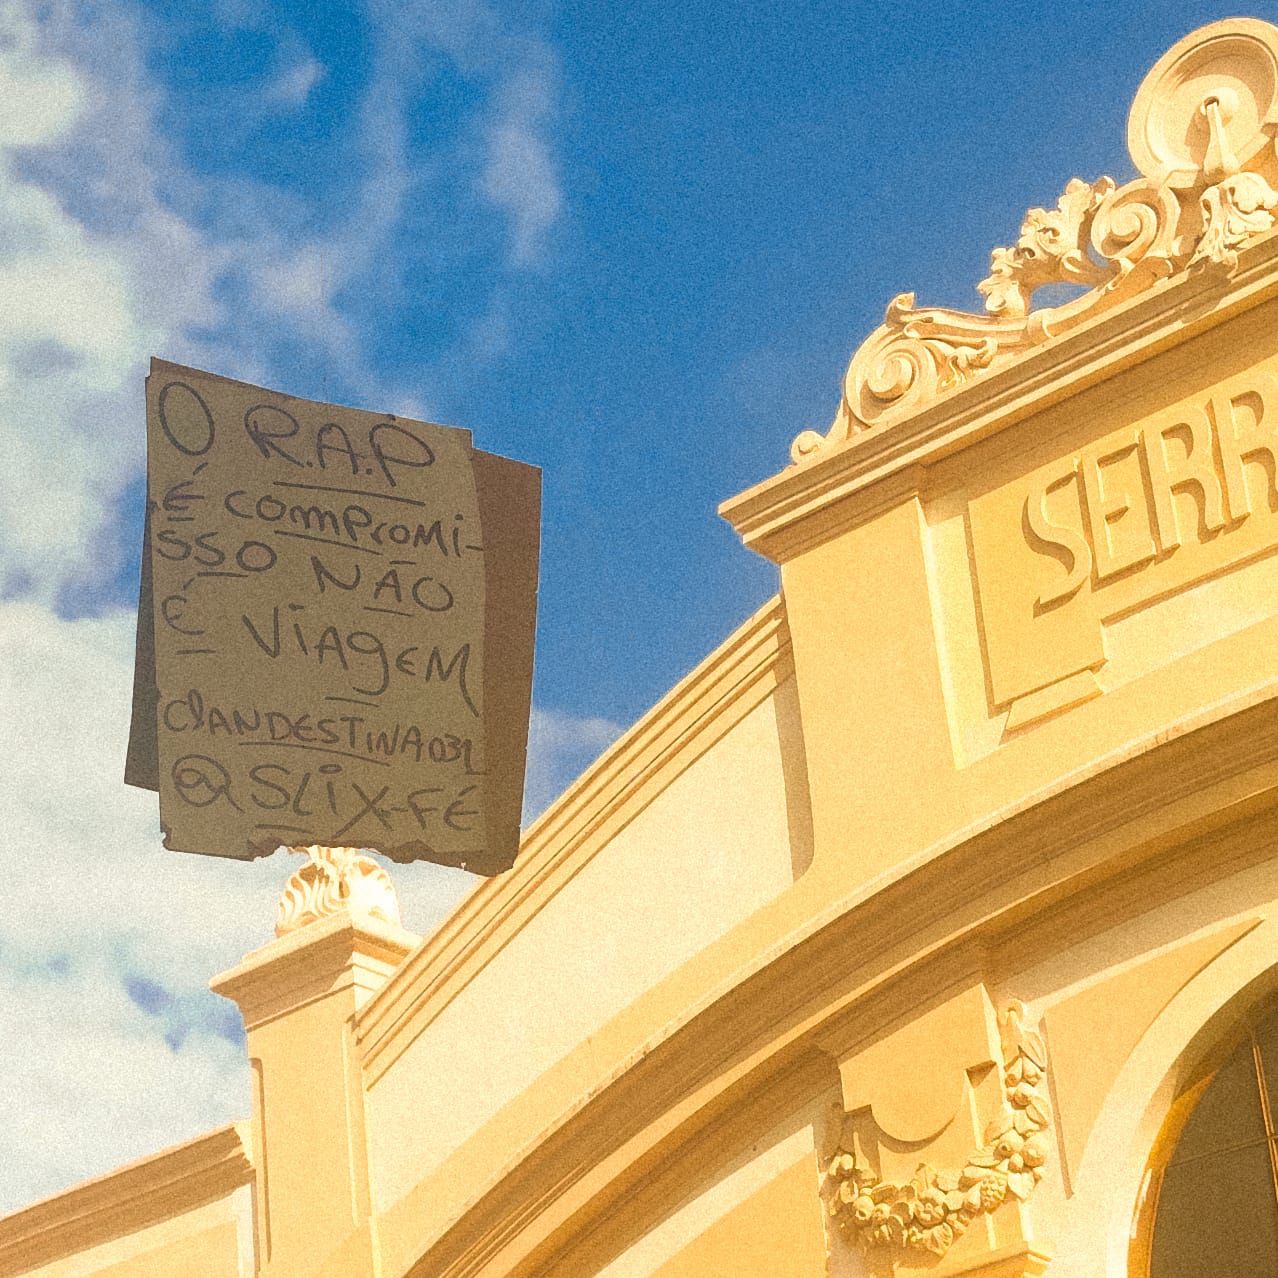 O R.A.P
É COMPROMI-
SSO NÃO
É ViAgEM
CLANDESTINA031
@SLiX-FÉ
SERR